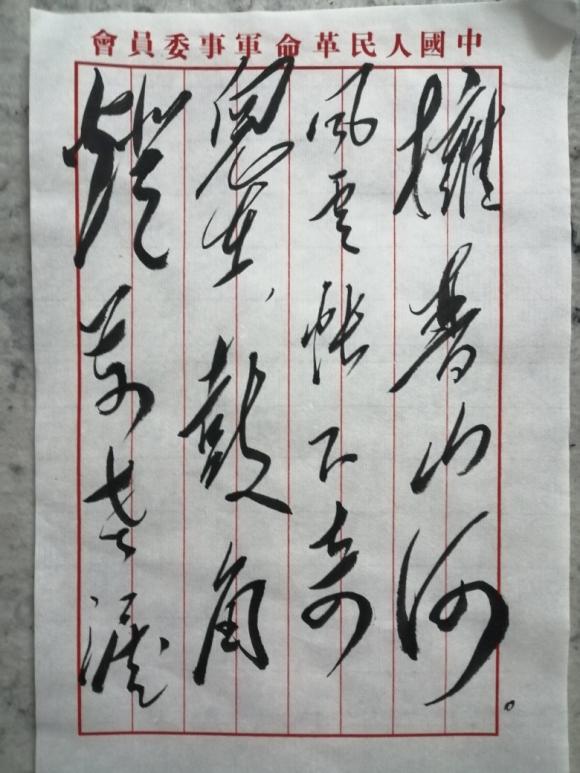 中國人民革命軍事委員會
擁晋山河。
風雲帳下奇
兒在、鼓角
燈前老淚